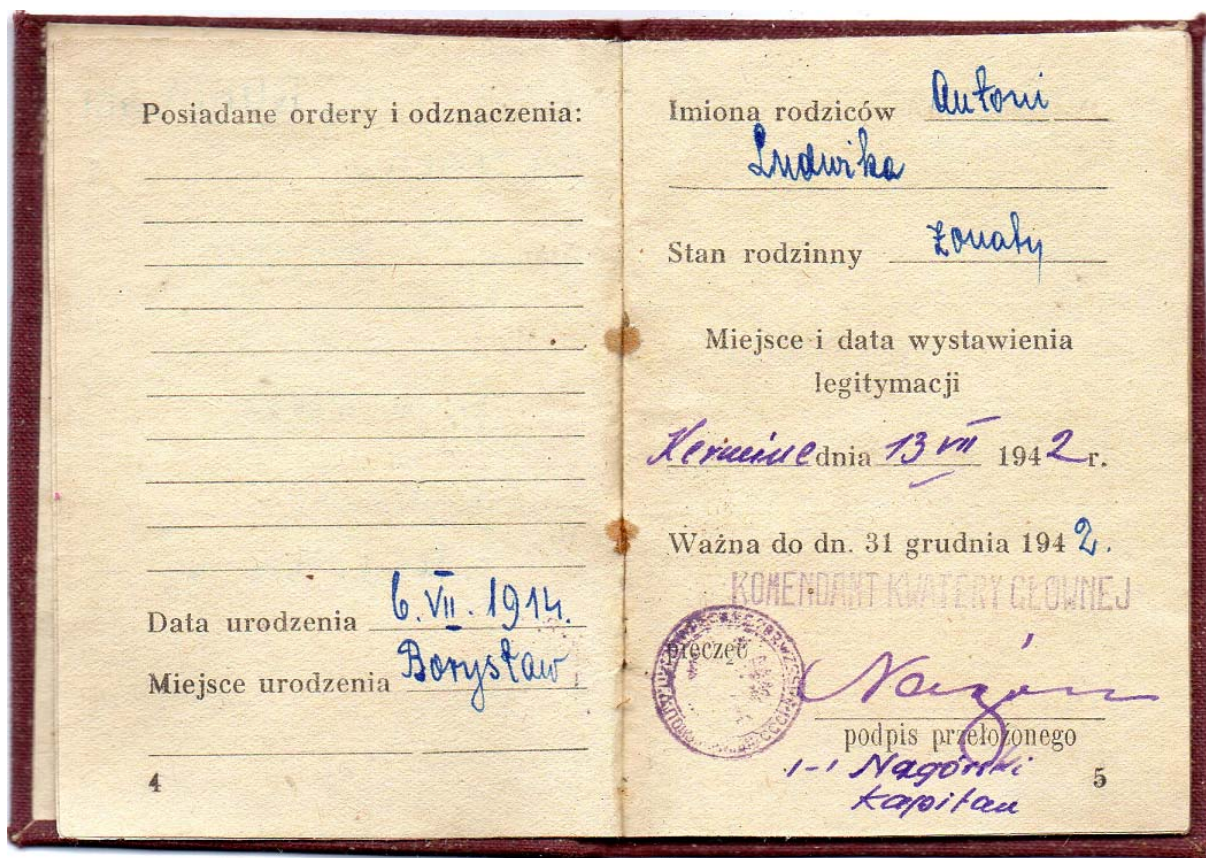 Posiadane ordery i odznaczenia:
Data urodzenia 6.VII.1914.
Miejsce urodzenia Borysław
4
Imiona rodziców Antoni
Ludwika
Stan rodzinny żonaty
Miejsce i data wystawienia
legitymacji
Kermine dnia 13 VII 1942 r.
Ważna do dn. 31 grudnia 1942.
KOMENDANT KWATERY GŁÓWNEJ
pieczęć
podpis przełożonego
/-/ Nagórski
Kapitan
5